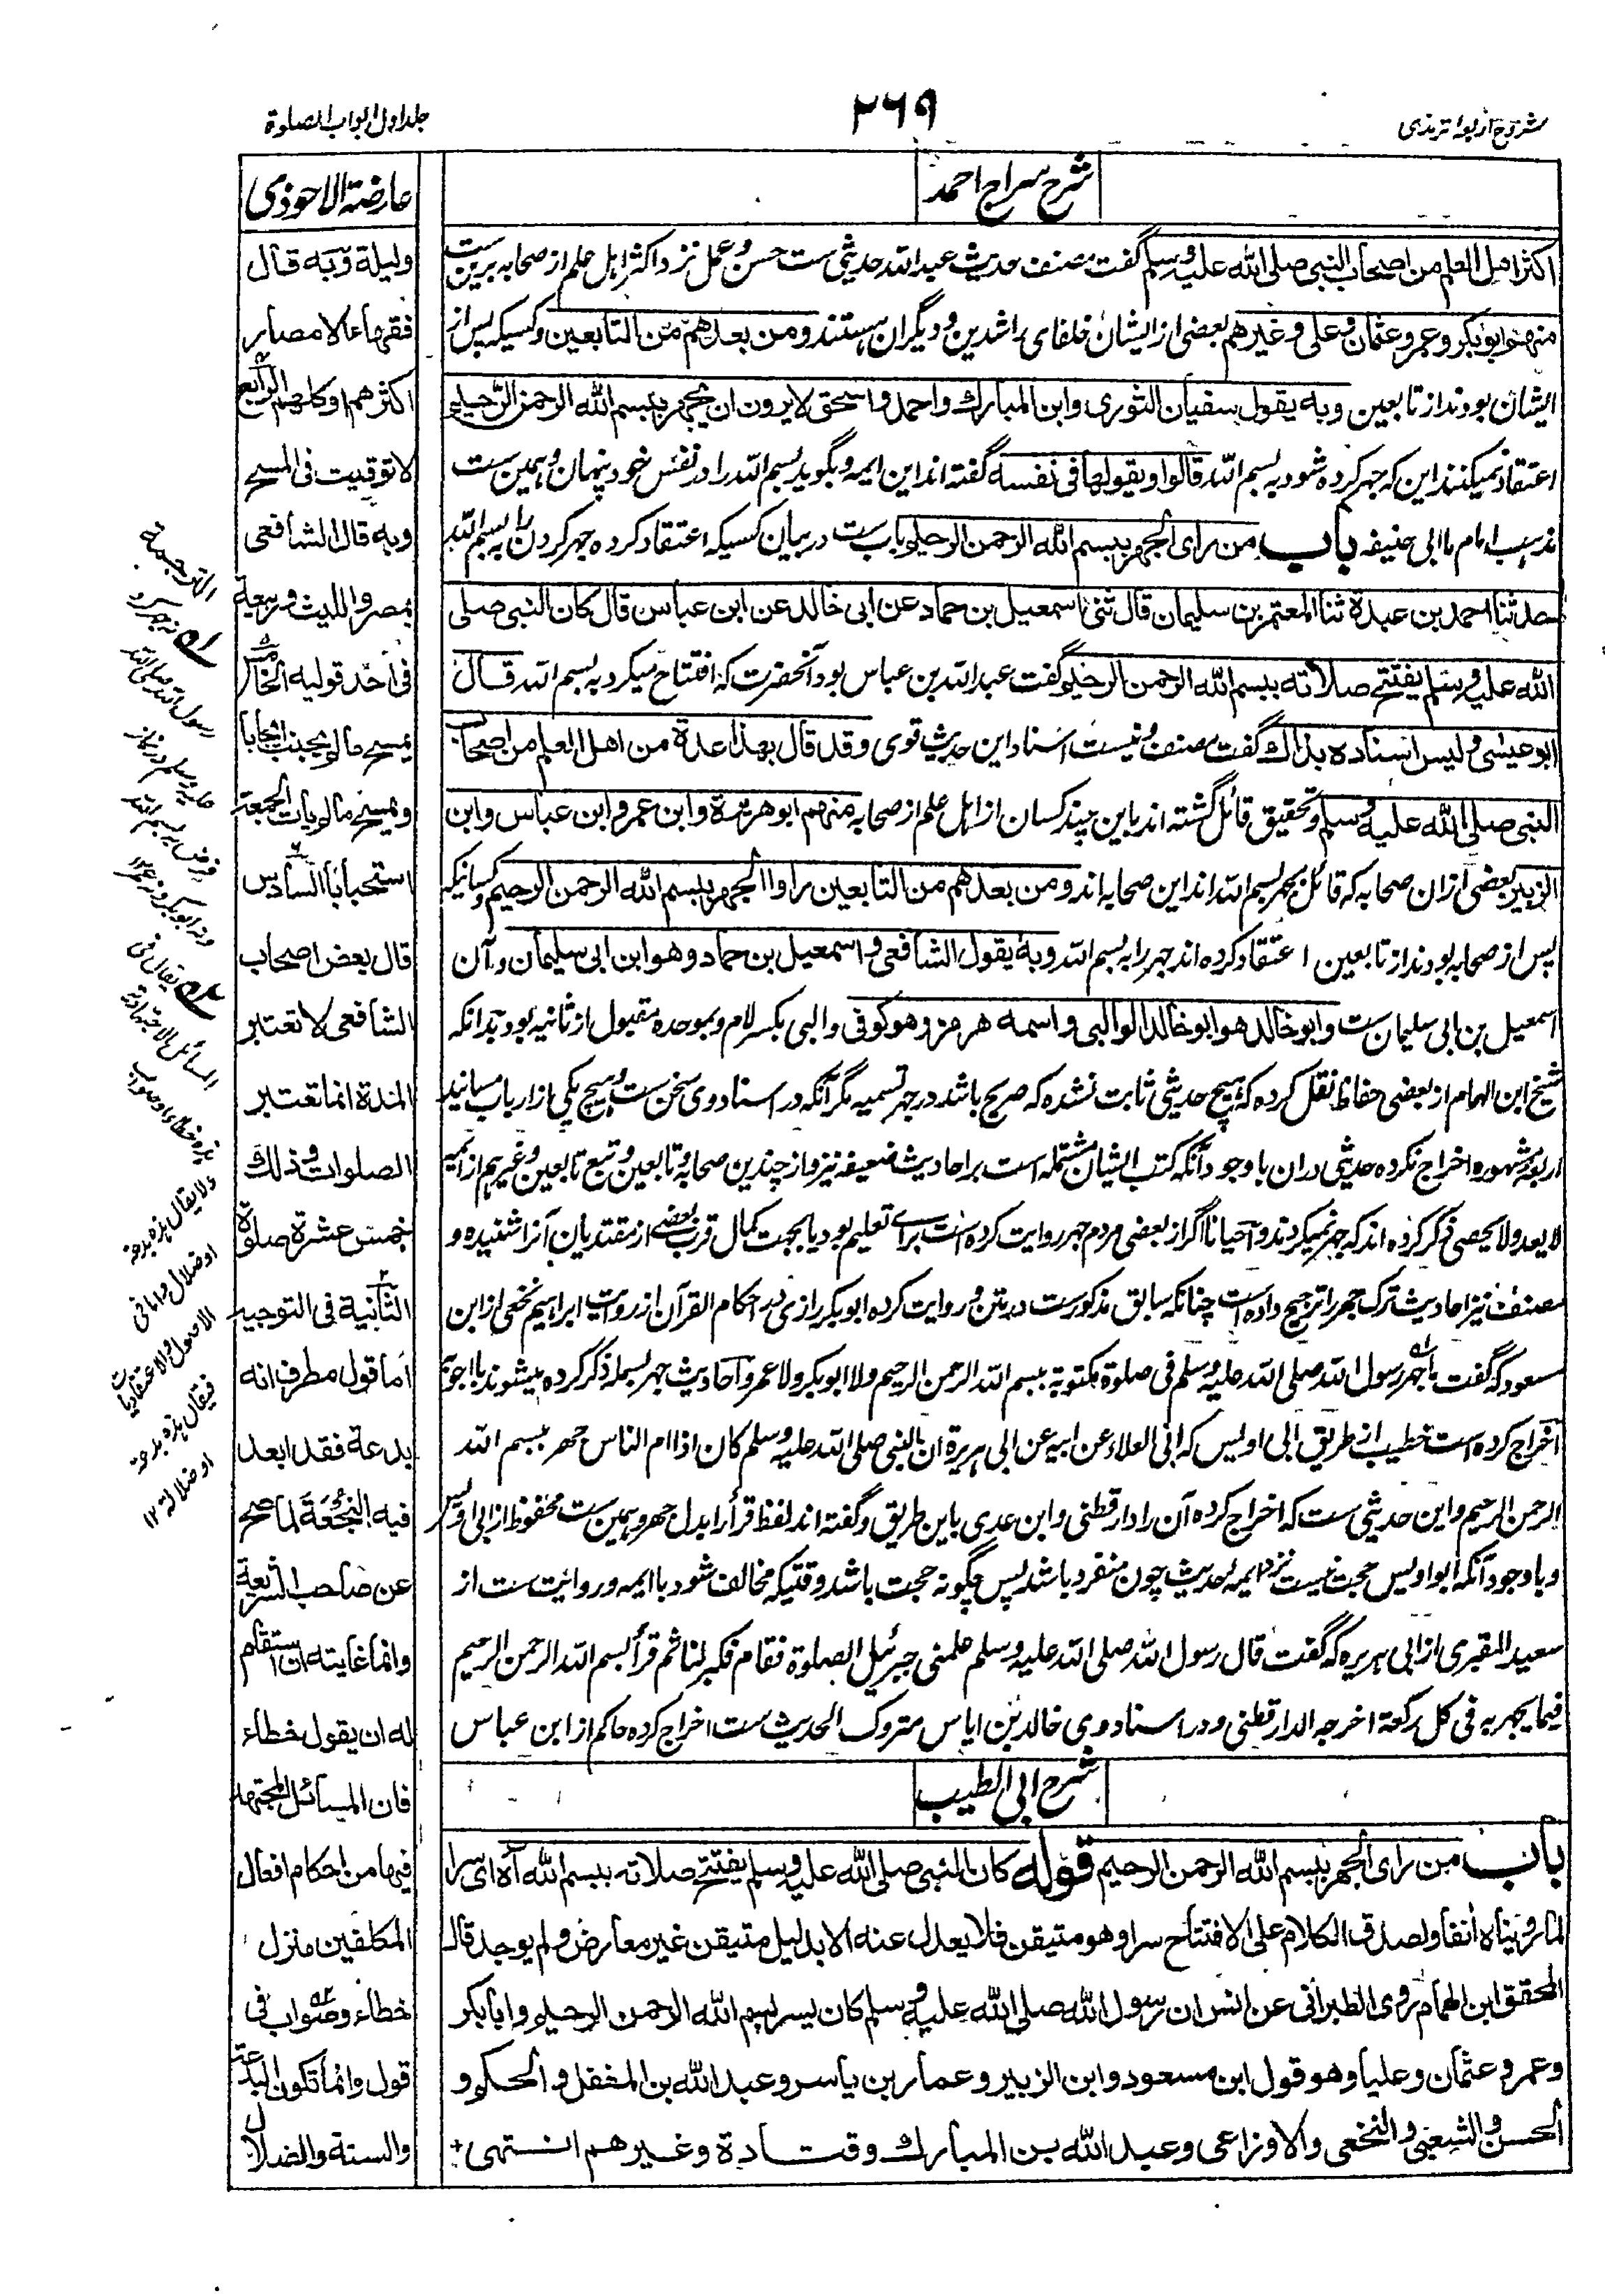 شروح اربعه ترمذی
۲۶۹
جلد اول ابواب الصلوة
شرح سراج احمد
اکثر اهل العلم من اصحاب النبی صلی الله علیه وسلم گفت مصنف حدیث عبد الله حدیثی ست حسن و عمل نزد اکثر اهل علم از صحابه برین ست
منهم ابو بکر و عمر و عثمان و علی و غیرهم بعضی از ایشان خلفای راشدین و دیگران هستند و من بعدهم من التابعین و کسیکه پس از
ایشان بودند از تابعین و به یقول سفیان الثوری و ابن المبارک و احمد و اسحق لا یرون ان یجهر ببسم الله الرحمن الرحیم
اعتقاد نمیکنند این که جهر کرده شود به بسم الله قالوا و یقولها فی نفسه گفته اند این ایمه و بگوید بسم الله را در نفس خود پنهان و همین ست
مذهب امام ما ابی حنیفه باب من رای الجهر ببسم الله الرحمن الرحیم باب ست در بیان کسیکه اعتقاد کرده جهر کردن را به بسم الله
حدثنا احمد بن عبدة ثنا المعتمر بن سلیمان قال ثنی اسمعیل بن حماد عن ابی خالد عن ابن عباس قال کان النبی صلی
الله علیه وسلم یفتتح صلاته ببسم الله الرحمن الرحیم گفت عبد الله بن عباس بود آنحضرت که افتتاح میکرد به بسم الله قال
ابو عیسی و لیس اسناده بذاک گفت مصنف و نیست اسناد این حدیث قوی و قد قال بهذا عدة من اهل العلم من اصحاب
النبی صلی الله علیه وسلم و تحقیق قائل گشته اند باین چند کسان از اهل علم از صحابه منهم ابو هریرة و ابن عمر و ابن عباس و ابن
الزبیر بعضی ازان صحابه که قائل بجهر بسم الله اند این صحابه اند و من بعدهم من التابعین راوا الجهر ببسم الله الرحمن الرحیم و کسانیکه
پس از صحابه بودند از تابعین اعتقاد کرده اند جهر را به بسم الله و به یقول الشافعی و اسمعیل بن حماد و هو ابن ابی سلیمان و آن
اسمعیل بن ابی سلیمان ست و ابو خالد هو ابو خالد الوالبی و اسمه هرمز و هو کوفی والبی بکسر لام و بموحده مقبول از ثانیه بود بدانکه
شیخ ابن الهمام از بعضی حفاظ نقل کرده که هیچ حدیثی ثابت نشده که صریح باشد در جهر تسمیه مگر آنکه در اسناد وی سخن ست و هیچ یکی از ارباب مسانید
اربعه مشهوره اخراج نکرده حدیثی دران با وجود آنکه کتب ایشان مشتمله است بر احادیث ضعیفه نیز و از چندین صحابه و تابعین و تبع تابعین و غیرهم از ایمه
لا یعد و لا یحصی ذکر کرده اند که جهر نمیکردند و احیانا اگر از بعضی مردم جهر روایت کرده است برای تعلیم بود یا بجهت کمال قرب بعضی از مقتدیان آنرا شنیده و
مصنف نیز احادیث ترک جهر را ترجیح داده است چنانکه سابق مذکور ست در متن و روایت کرده ابو بکر رازی در احکام القرآن از روایت ابراهیم نخعی از ابن
مسعود که گفت ما جهر رسول الله صلی الله علیه وسلم فی صلوة مکتوبة ببسم الله الرحمن الرحیم ولا ابو بکر ولا عمر و احادیث جهر بسمله ذکر کرده میشوند با اجوبه
اخراج کرده است خطیب از طریق ابی اویس که انی العلاء عن ابیه عن ابی هریرة ان النبی صلی الله علیه وسلم کان اذا ام الناس جهر ببسم الله
الرحمن الرحیم و این حدیثی ست که اخراج کرده آن را دارقطنی و ابن عدی باین طریق و گفته اند لفظ قرأ را بدل جهر و همین ست محفوظ از ابی اویس
و با وجود آنکه ابو اویس حجت نیست نزد ایمه حدیث چون منفرد باشد پس چگونه حجت باشد وقتیکه مخالف شود با ایمه و روایت ست از
سعید المقبری از ابی هریره که گفت قال رسول الله صلی الله علیه وسلم علمنی جبرئیل الصلوة فقام فکبر لنا ثم قرأ بسم الله الرحمن الرحیم
فیما یجهر به فی کل رکعة اخرجه الدارقطنی و در اسناد وی خالد بن ایاس متروک الحدیث ست اخراج کرده حاکم از ابن عباس
شرح ابی الطیب
باب من رای الجهر ببسم الله الرحمن الرحیم قوله کان النبی صلی الله علیه وسلم یفتتح صلاته ببسم الله آه ای سرا
لما رویناه آنفا ولصدق الکلام علی الافتتاح سرا وهو متیقن فلا یعدل عنه الا بدلیل متیقن غیر معارض ولم یوجد قال
المحقق ابن الهمام روی الطبرانی عن انس ان رسول الله صلی الله علیه وسلم کان یسر ببسم الله الرحمن الرحیم وابا بکر
وعمر وعثمان وعلیا وهو قول ابن مسعود وابن الزبیر وعمار بن یاسر وعبد الله بن المغفل والحکم و
الحسن والشعبی والنخعی والاوزاعی وعبد الله بن المبارک وقتادة وغیرهم انتهی
عارضة الاحوذی
ولیلة وبه قال
فقهاء الامصار
اکثرهم او کلهم الرابع
لا توقیت فی المسح
وبه قال الشافعی
بمصر واللیث وربیعة
فی احد قولیه الخامس
یمسح ما لم یجنب ایجابا
ویمسح ما لم یات الجمعة
استحبابا السادس
قال بعض اصحاب
الشافعی لا تعتبر
المدة انما تعتبر
الصلوات وذلک
خمس عشرة صلوة
الثانیة فی التوجیه
اما قول مطرف انه
بدعة فقد ابعد
فیه النجعة لما صح
عن صاحب الشریعة
وانما غایته ان استقام
له ان یقول خطاء
فان المسائل المجتهد
فیها من احکام افعال
المکلفین منزل
خطاء وصواب فی
قول وانما تکون البدعة
والسنة والضلال
الترجمة
نه جهر کرد
رسول الله صلی الله
علیه وسلم در نماز
فرض به بسم الله
و نه ابو بکر و نه عمر
یقال فی
المسائل الاجتهادیة
هذه خطاء او صواب
ولا یقال هذه بدعة
او ضلال واما فی
الاصول والاعتقادیات
فیقال هذه بدعة
او ضلالة ۱۲